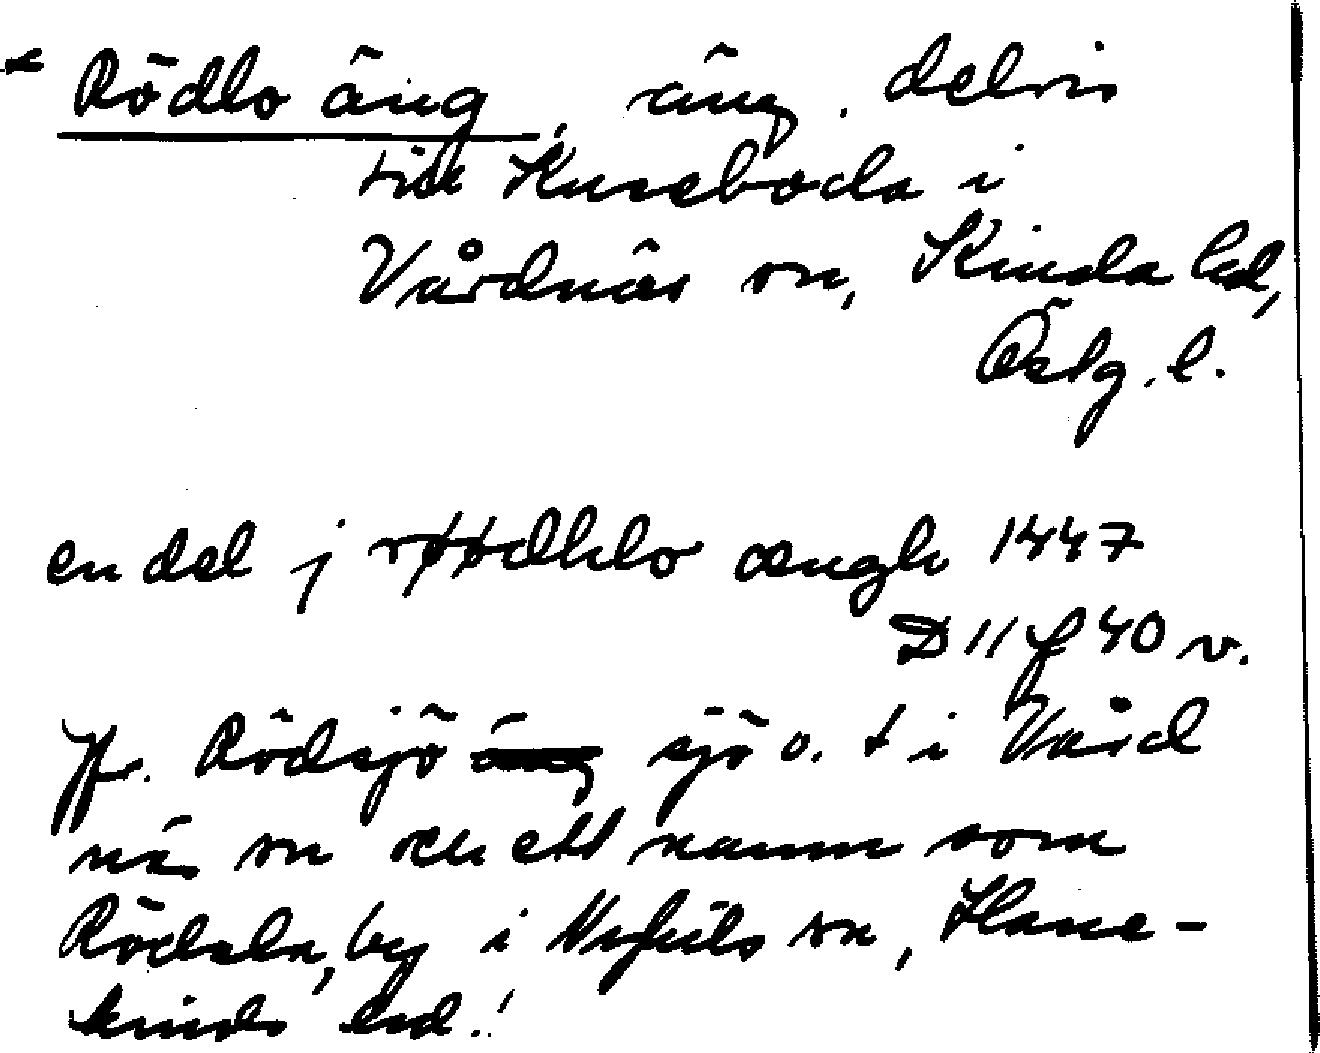 * Rödlo äng, äng. delvis
till Kuseboda i
Vårdnäs sn, Kinda hd,
Östg. l.
en del j røødhlo ængh 1447
D 11 f 40 v.
Jfr. Rödsjö sjö o. t i Vård
näs sn och ett namn som
Rödsla, by i Vist sn, Hane-
kinds hd!